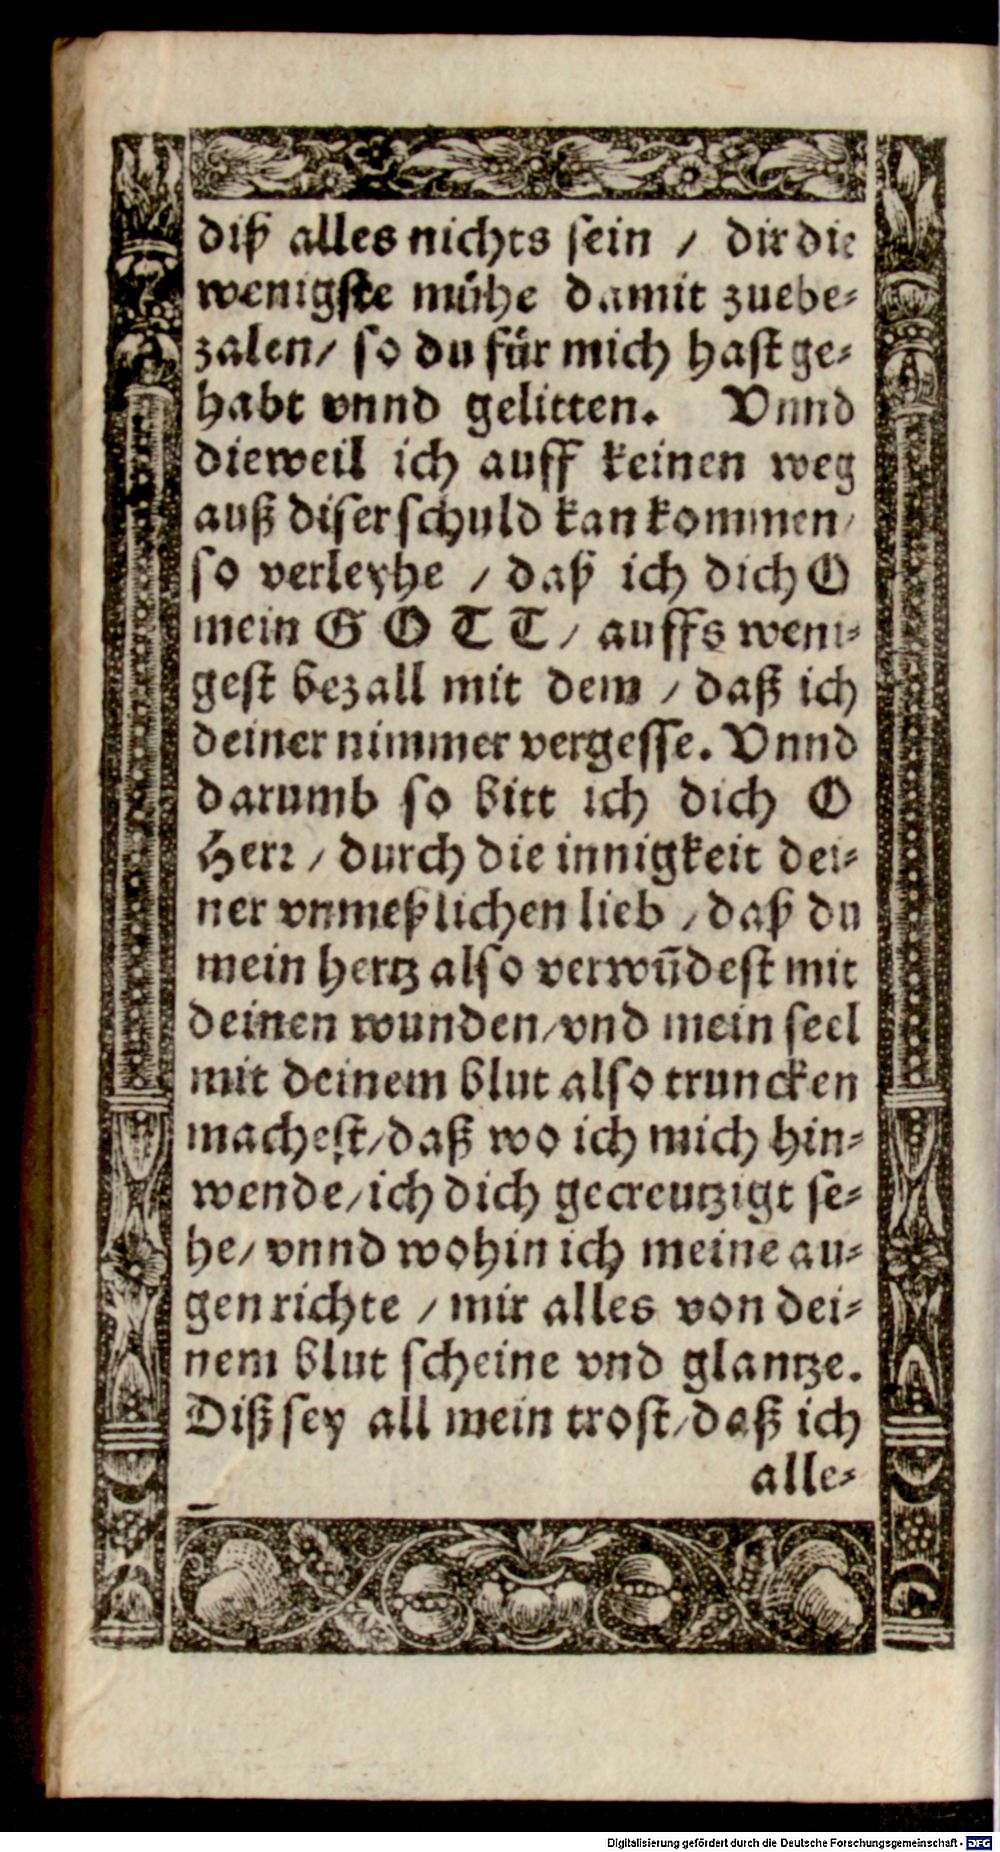 diß alles nichts sein / dir die
wenigste mühe damit zuebe-
zalen/ so du für mich hast ge-
habt vnnd gelitten. Vnnd
dieweil ich auff keinen weg
auß diser schuld kan kommen/
so verleyhe / daß ich dich O
mein GOTT/ auffs weni-
gest bezall mit dem / daß ich
deiner nimmer vergesse. Vnnd
darumb so bitt ich dich O
Herr / durch die innigkeit dei-
ner vnmeßlichen lieb / daß du
mein hertz also verwūdest mit
deinen wunden/ vnd mein seel
mit deinem blut also truncken
machest/ daß wo ich mich hin-
wende/ ich dich gecreutzigt se-
he/ vnnd wohin ich meine au-
gen richte / mir alles von dei-
nem blut scheine vnd glantze.
Diß sey all mein trost/ daß ich
alle-
Digitalisierung gefördert durch die Deutsche Forschungsgemeinschaft - DFG